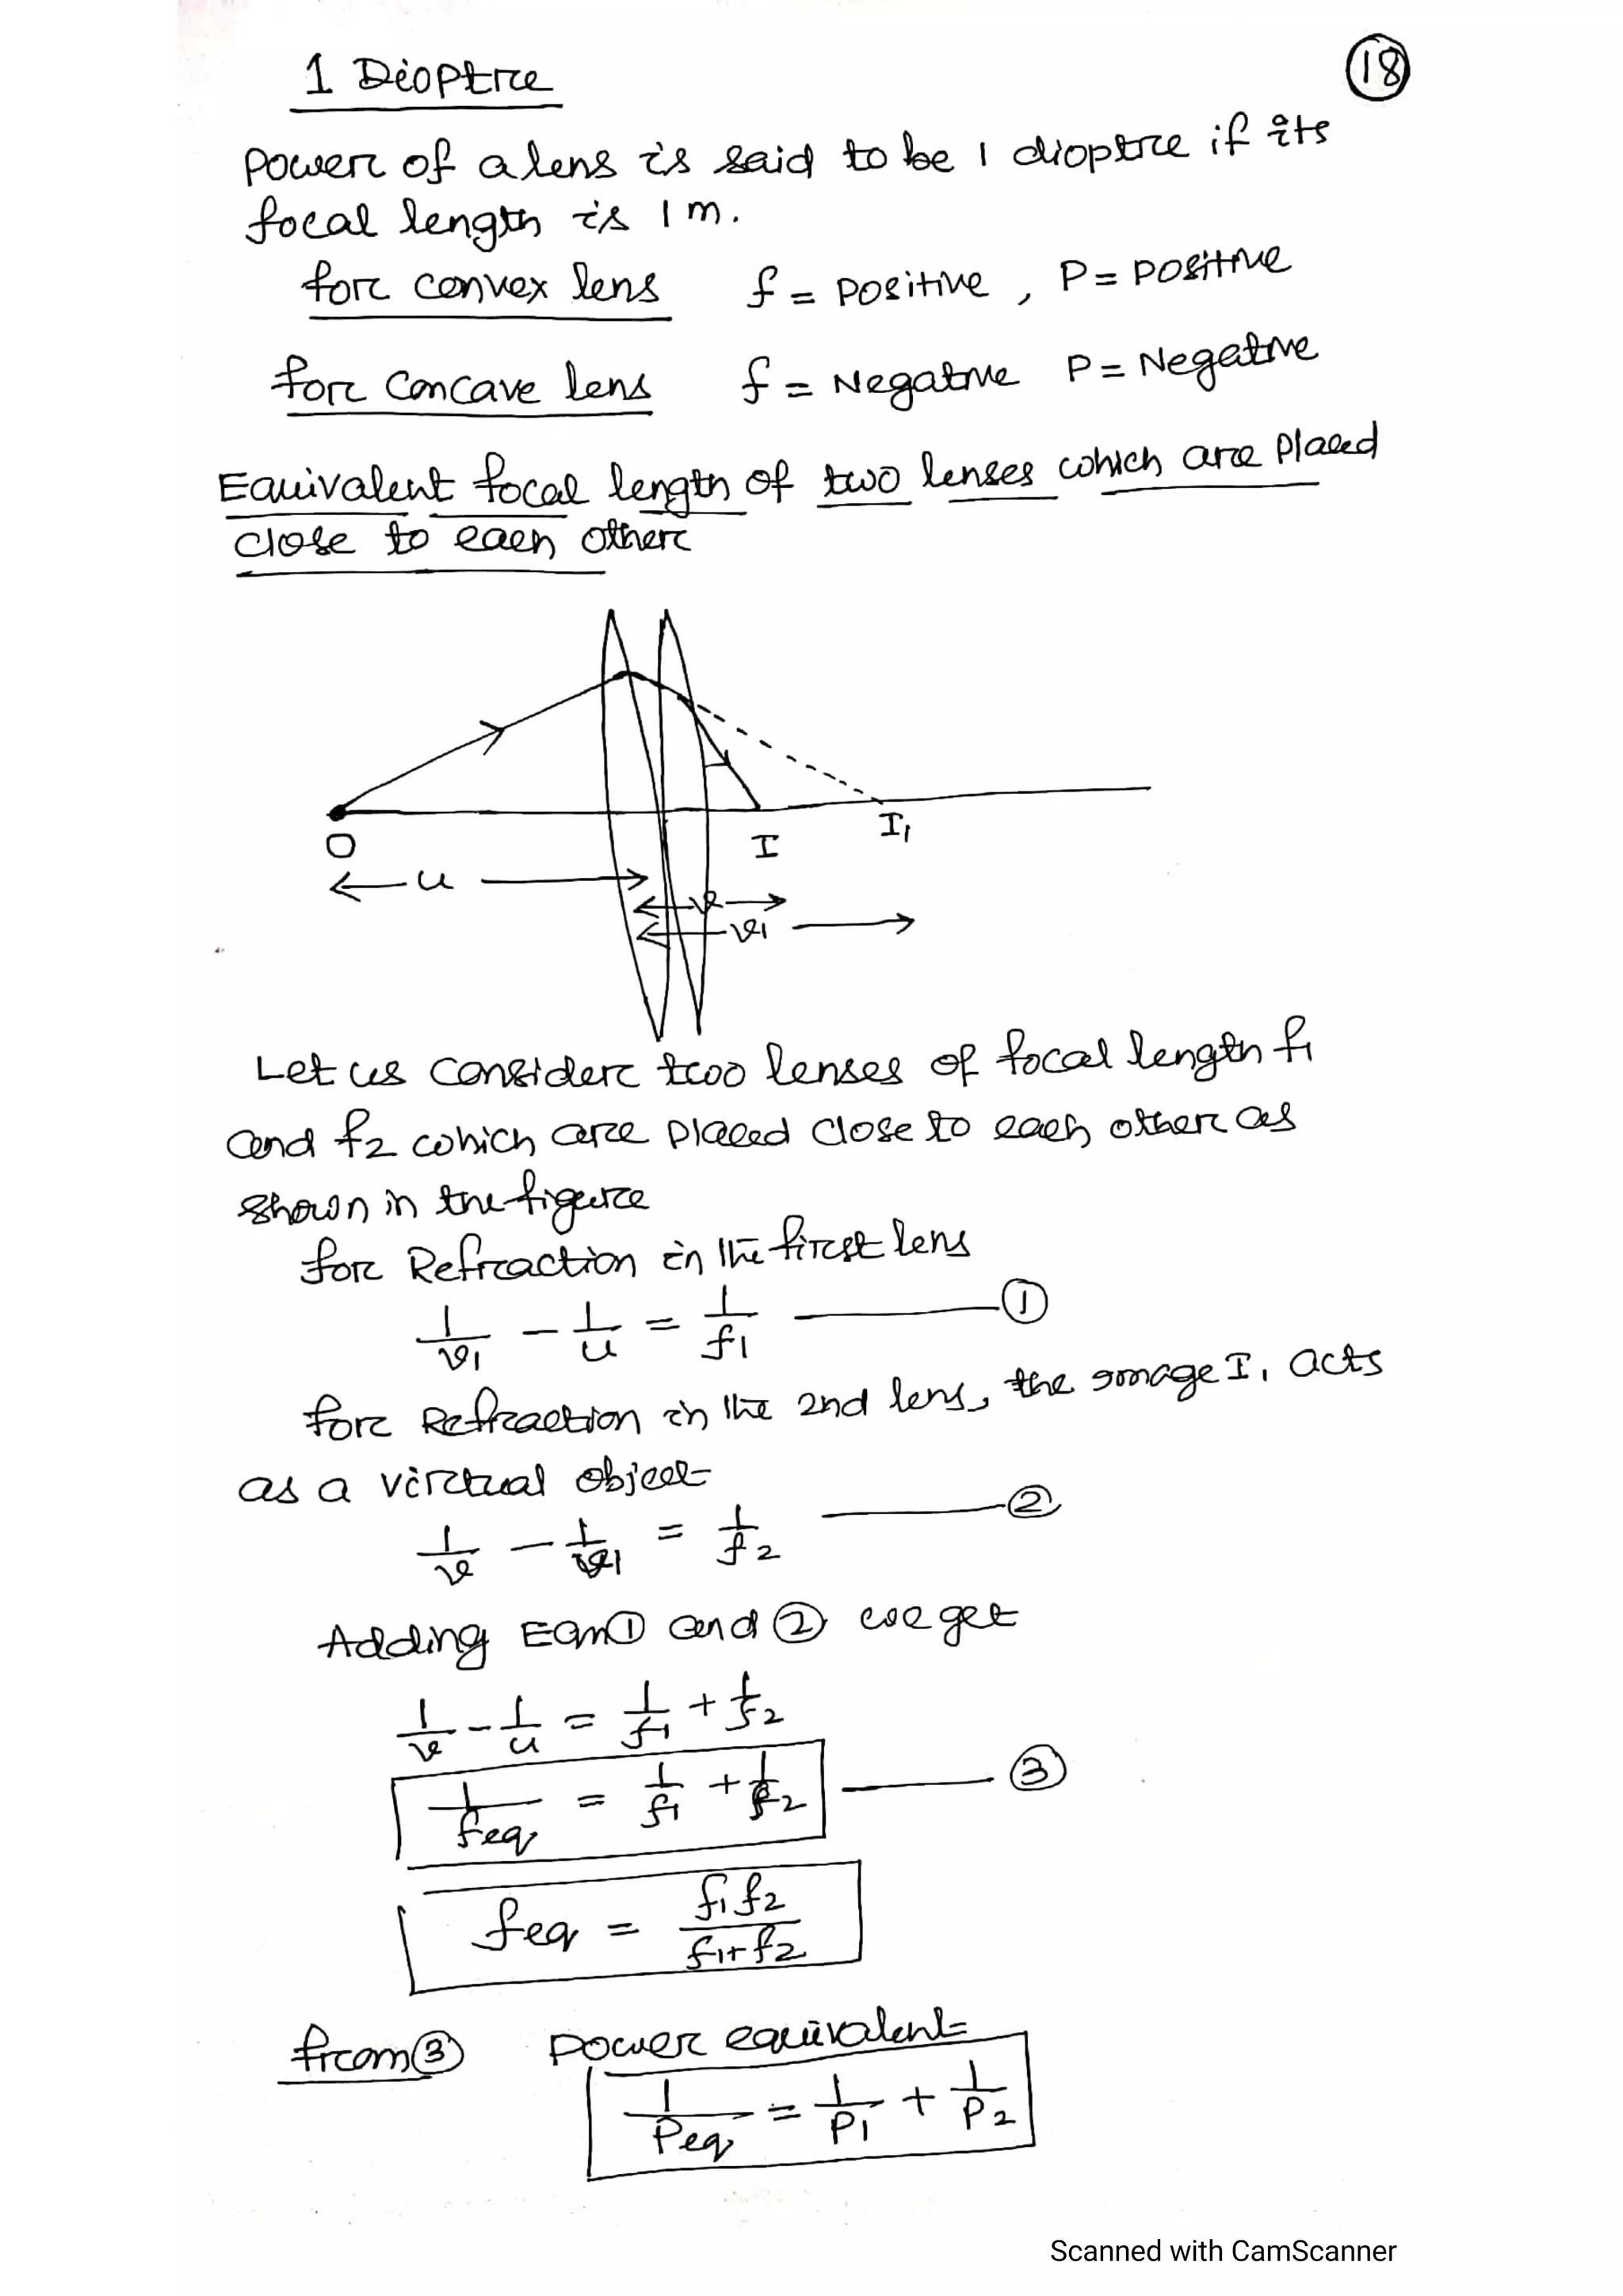 1 Dioptre
18
Power of a lens is said to be 1 dioptre if its
focal length is 1 m.
for convex lens f = Positive , P = Positive
for Concave lens f = Negative P = Negative
Equivalent focal length of two lenses which are placed
close to each other
O
I
I₁
u
v
v₁
Let us consider two lenses of focal length f₁
and f₂ which are placed close to each other as
shown in the figure
for Refraction in the first lens
1/v₁ - 1/u = 1/f₁ ——— ①
for Refraction in the 2nd lens, the image I₁ acts
as a virtual object
1/v - 1/v₁ = 1/f₂ ——— ②
Adding Eqn ① and ② we get
1/v - 1/u = 1/f₁ + 1/f₂
1/feq = 1/f₁ + 1/f₂ ——— ③
feq = f₁f₂/f₁+f₂
from ③ Power equivalent
1/Peq = 1/P₁ + 1/P₂
Scanned with CamScanner